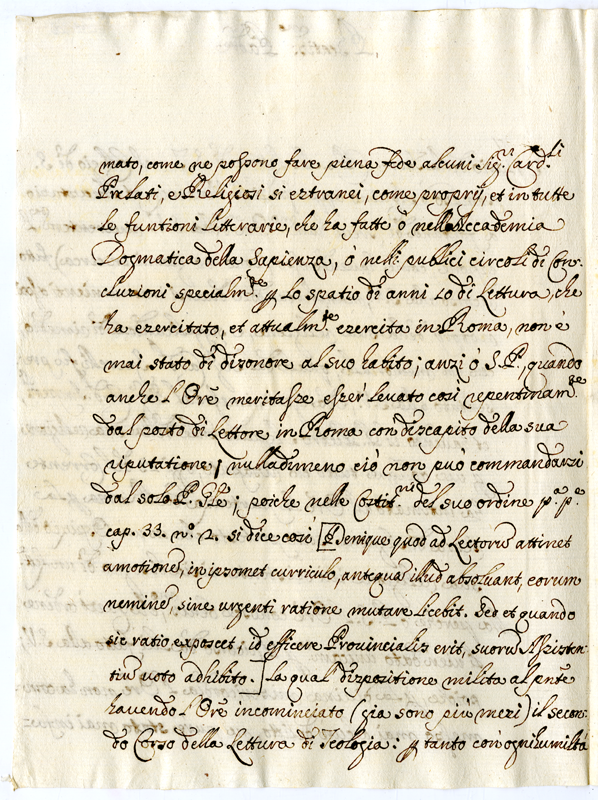 mato, come ne possono fare piena fede alcuni Sig.ri Card.li
Prelati, e Religiosi si extranei, come proprij, et in tutte
le funtioni litterarie, che ha fatte ò nella Accademia
Dogmatica della Sapienza, ò nelli publici circoli di Con-
cluzioni specialm.te p lo spatio di anni 10 di Lettura, che
ha exercitato, et attualm.te exercita in Roma, non è
mai stato di dizonore al suo habito; anzi ò S.P. quando
anche l'Ore meritasse esser levato cosi repentinam.te
dal posto di Lettore in Roma con discapito della sua
riputatione; nulladimeno ciò non può commandarzi
dal solo P. Gle; poiche nelle Costit.ni del suo ordine p.a p.e
cap. 33. n.o 2. si dice cosi [Denique quod ad Lectorũ attinet
amotionẽ, in ipsomet curriculo, antequã illud absoluant, eorum
neminẽ, sine urgenti ratione mutare licebit. Sed et quando
sic ratio exposcet, id efficere Provincialis erit, suorũ Assisten-
tiũ voto adhibito.] La qual dizpozitione milita al pnte
havendo l'Ore incominciato (gia sono piu mezi) il secon-
do Corso della Lettura di Teologia: p tanto con ogni humiltà